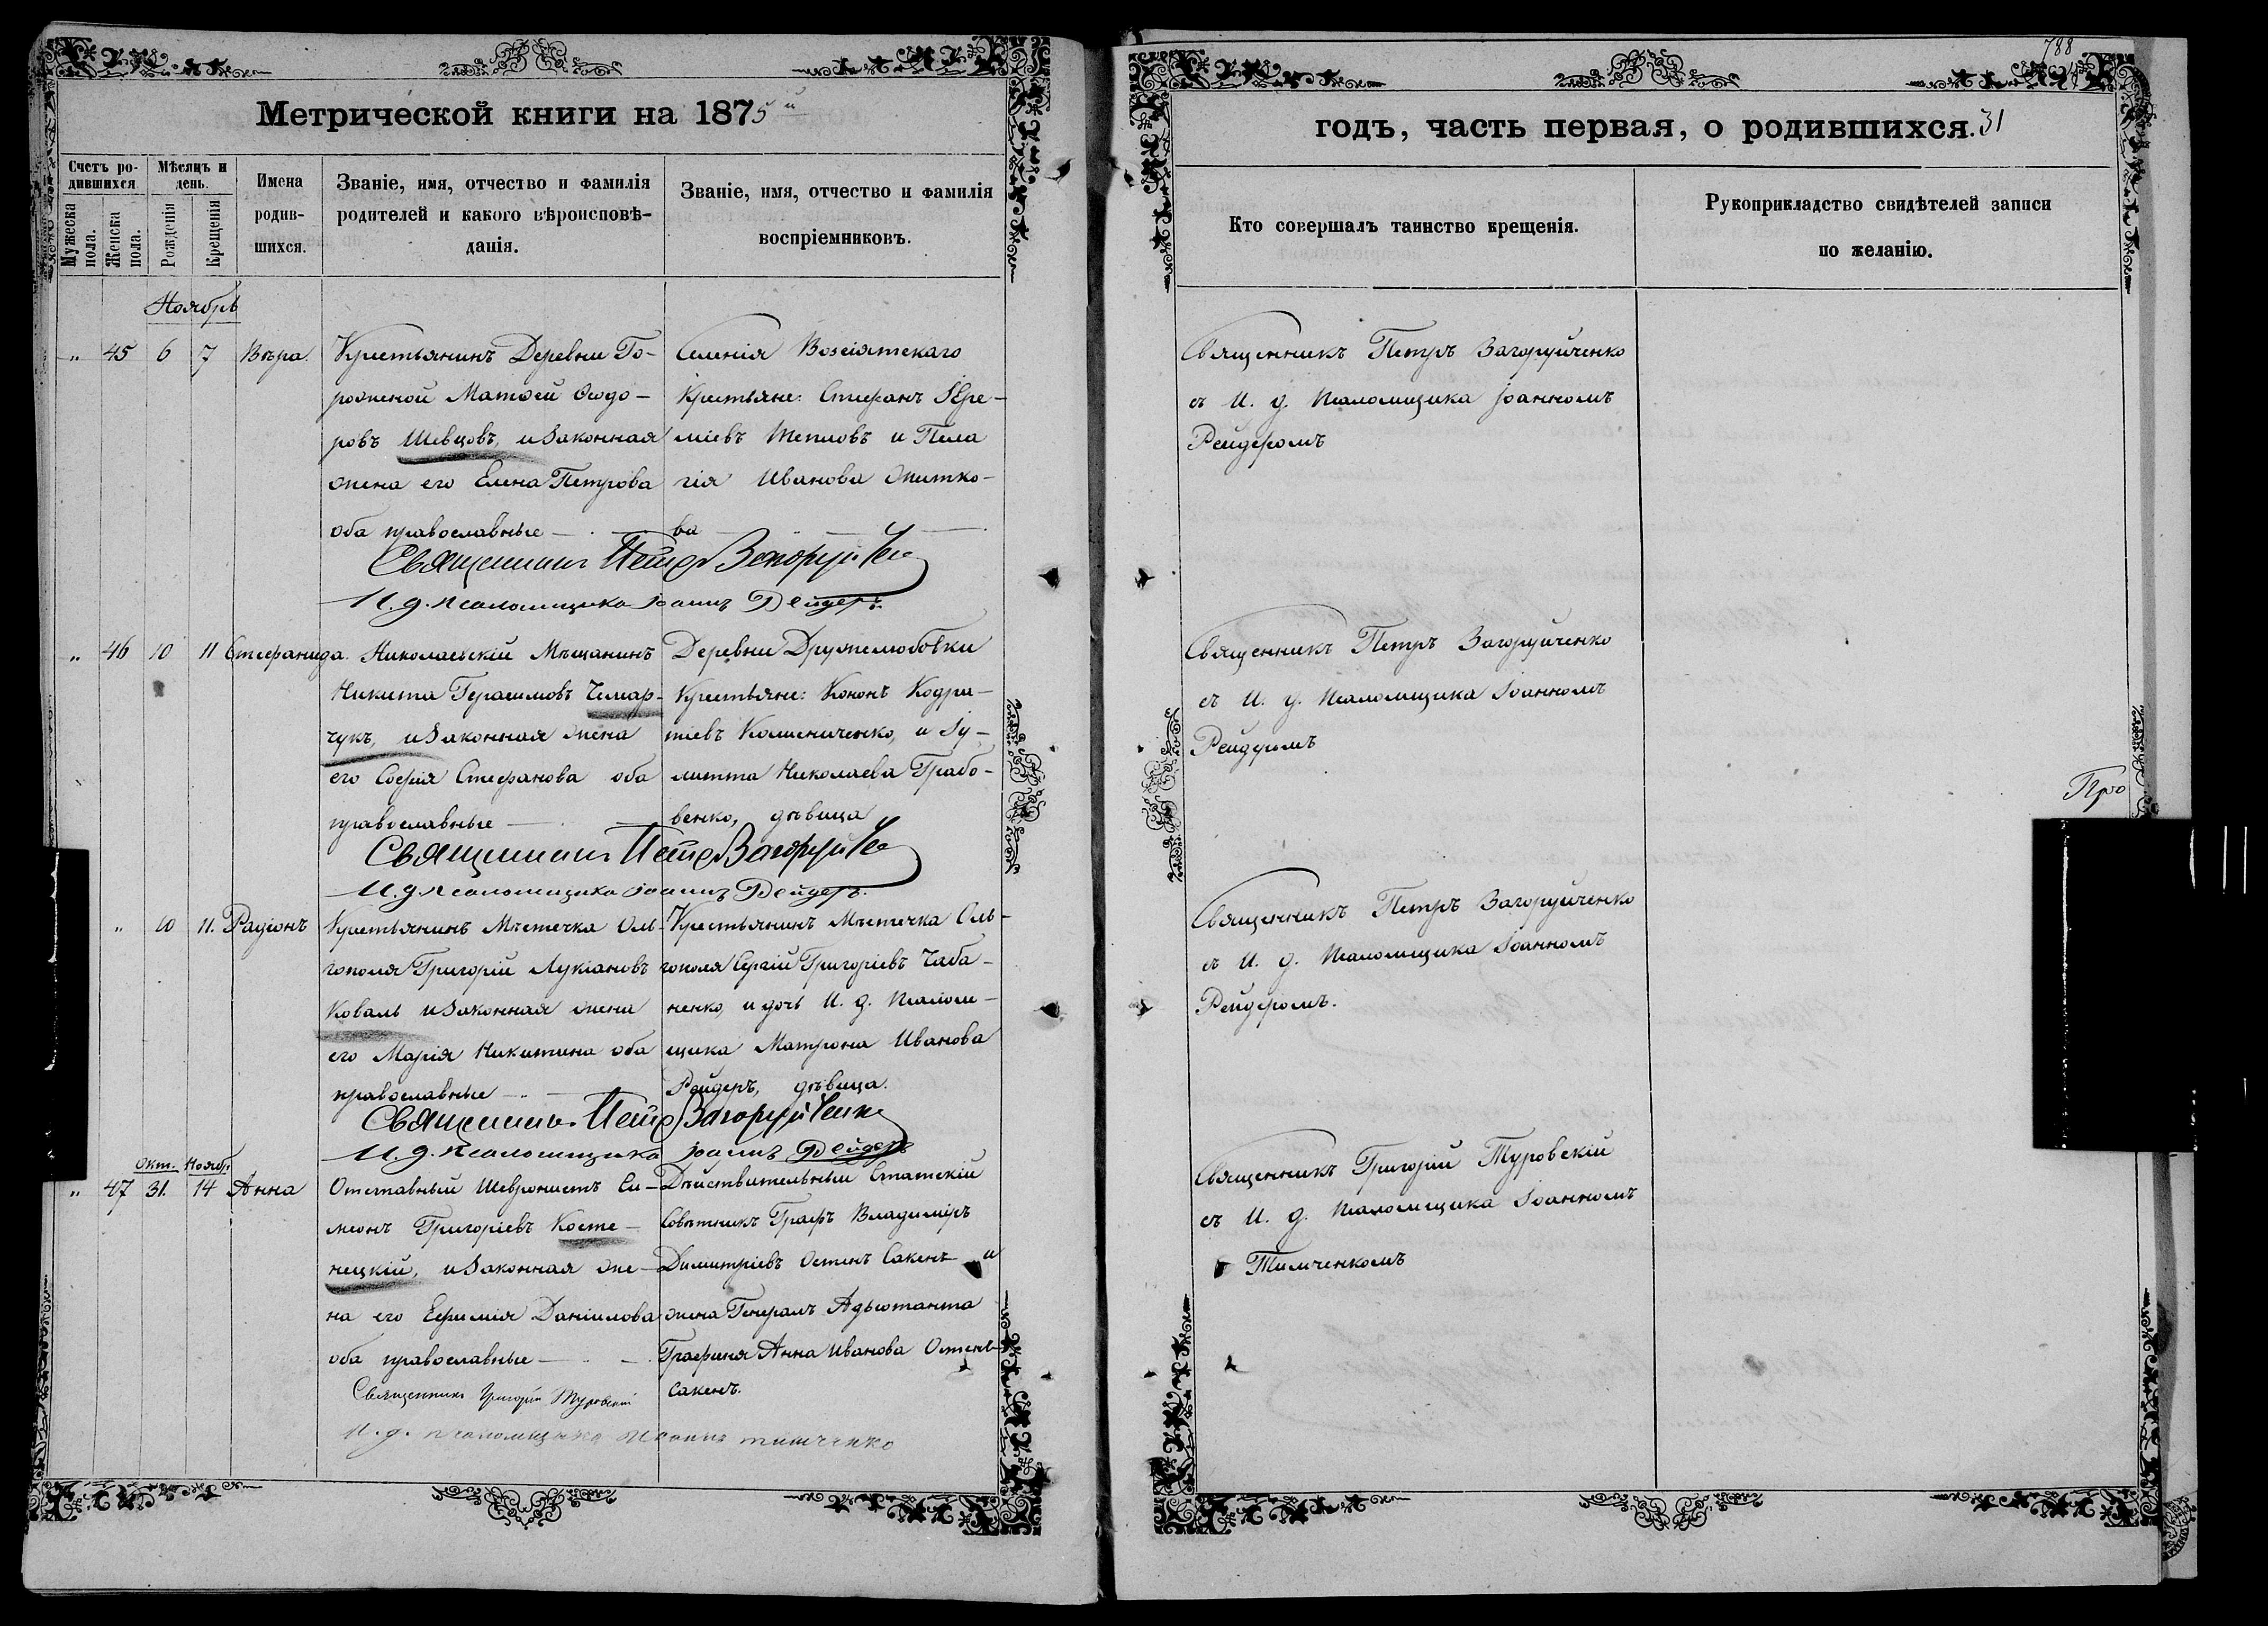 Метрической книги на 1875й
Счетъ родившихся
Мѣсяцъ и день.
Имена родившихся.
Званіе, имя, отчество и фамилія родителей и какого вѣроисповѣданія.
Званіе, имя, отчество и фамилія воспріемниковъ.
Мужеска пола.
Женска пола.
Рожденія
Крещенія
Ноябрь
„ 45 6 7 Вѣра.
Крестьянинъ Деревни Го-
рожсной Матѳей Ѳеодо-
ровъ Шевцовъ, и законная
жена его Елена Петрова
оба православные
Селенія Возсіятскаго
Крестьяне: Стефанъ Іере-
міевъ Тепловъ и Пела
гія Иванова Житко-
ва
Священникъ Петръ Загоруйче
И. д. псаломщика Іоаннъ Рейдеръ.
„ 46 10 11 Стефанида.
Николаевскій Мѣщанинъ
Никита Герасимовъ Чемар-
чукъ, и законная жена
его Софія Стефанова оба
православные
Деревни Дружелюбовки
Крестьяне: Кононъ Кодра-
тіевъ Колисниченко, и Іу-
литта Николаева Грабо-
венко, дѣвица
Священникъ Петръ Загоруйче
И. д. псаломщика Іоаннъ Рейдеръ.
„ 10 11. Радіонъ
Крестьянинъ Мѣстечка Оль-
гополя Григорій Лукіановъ
Коваль и законная жена
его Марія Никитина оба
православные
Крестьянинъ Мѣстечка Оль-
гополя Сергій Григоріевъ Чаба-
ненко, и дочь И. д. псалом-
щика Матрона Иванова
Рейдеръ, дѣвица.
Священникъ Петръ Загоруйченко
И. д. псаломщика Іоаннъ Рейдеръ
Окт. Ноябр.
„ 47 31. 14 Анна
Отставный Шевронистъ Си-
меонъ Григоріевъ Косте-
нецкій, и законная же-
на его Ефимія Даніилова
оба православные
Дѣйствительный Статскій
Совѣтникъ Графъ Владиміръ
Димитріевъ Остенъ Сакенъ и
жена Генералъ Адъютанта
Графиня Анна Иванова Остенъ-
Сакенъ.
Священникъ Григорій Туровскій
И. д. псаломщика Іоаннъ Тимченко
788
годъ, часть первая, о родившихся. 31
Кто совершалъ таинство крещенія.
Рукоприкладство свидѣтелей записи по желанію.
Священникъ Петръ Загоруйченко
съ И. д. псаломщика Іоанномъ
Рейдеромъ
Священникъ Петръ Загоруйченко
съ И. д. псаломщика Іоанномъ
Рейдеромъ
Про
Священникъ Петръ Загоруйченко
съ И. д. псаломщика Іоанномъ
Рейдеромъ.
Священникъ Григорій Туровскій
съ И. д. псаломщика Іоанномъ
Тимченкомъ